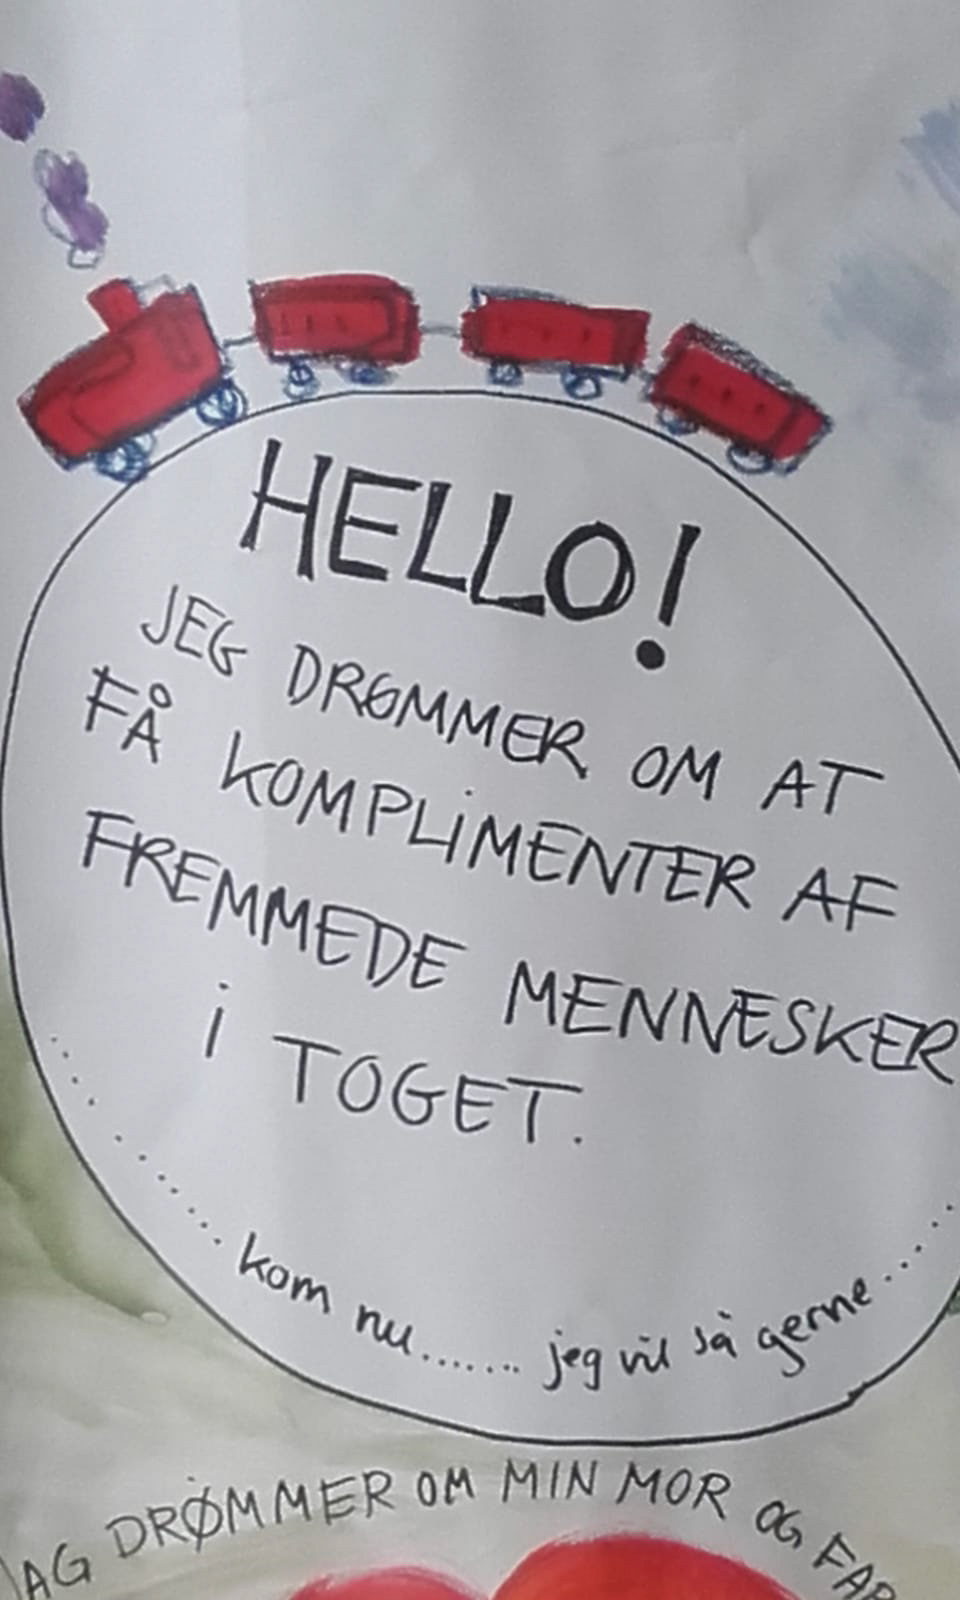 HELLO!
JEG DRØMMER OM AT
FÅ KOMPLIMENTER AF
FREMMEDE MENNESKER
i TOGET.
......... kom nu....... jeg vil så gerne......
JAG DRØMMER OM MIN MOR OG FAR